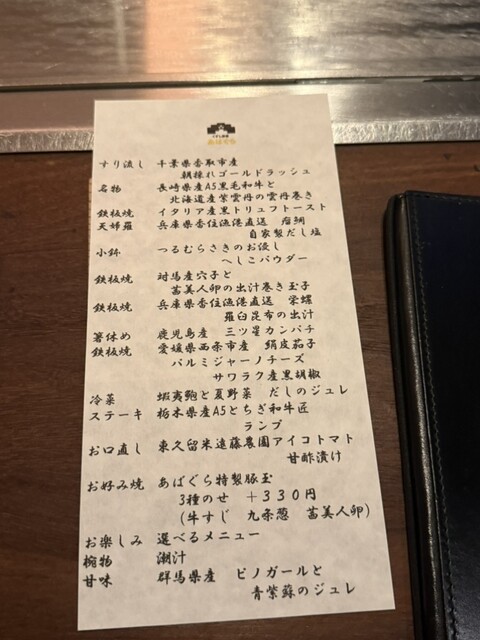 あばぐら
すり流し 千葉県香取市産
朝採れゴールドラッシュ
名物 長崎県産A5黒毛和牛と
北海道産紫雲丹の雲丹巻き
鉄板焼 イタリア産黒トリュフトースト
天婦羅 兵庫県香住漁港直送 瘤鯛
自家製だし塩
小鉢 つるむらさきのお浸し
へしこパウダー
鉄板焼 対馬産穴子と
茜美人卵の出汁巻き玉子
鉄板焼 兵庫県香住漁港直送 栄螺
羅臼昆布の出汁
箸休め 鹿児島産 三ツ星カンパチ
鉄板焼 愛媛県西条市産 絹皮茄子
パルミジャーノチーズ
サワラク産黒胡椒
冷菜 蝦夷鮑と夏野菜 だしのジュレ
ステーキ 栃木県産A5とちぎ和牛匠
ランプ
お口直し 東久留米遠藤農園アイコトマト
甘酢漬け
お好み焼 あばぐら特製豚玉
3種のせ +330円
(牛すじ 九条葱 茜美人卵)
お楽しみ 選べるメニュー
椀物 潮汁
甘味 群馬県産 ピノガールと
青紫蘇のジュレ